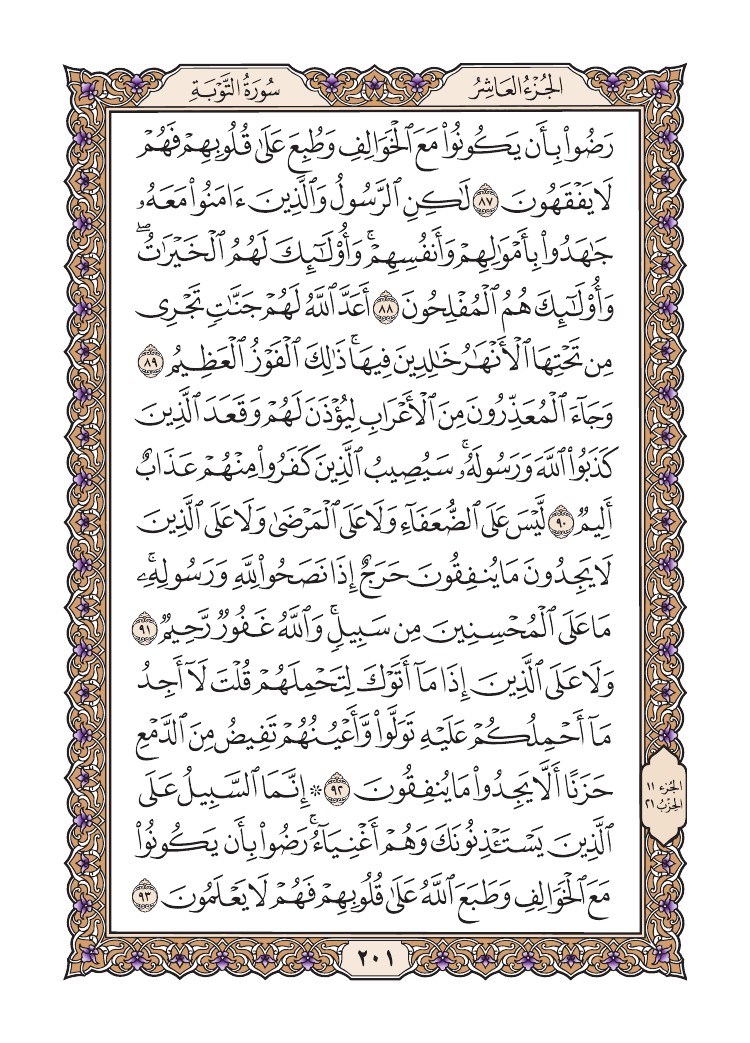 الجُزْءُ العَاشِرُ
سُورَةُ التَّوْبَةِ
رَضُوا۟ بِأَن يَكُونُوا۟ مَعَ ٱلْخَوَالِفِ وَطُبِعَ عَلَىٰ قُلُوبِهِمْ فَهُمْ
لَا يَفْقَهُونَ ٨٧ لَٰكِنِ ٱلرَّسُولُ وَٱلَّذِينَ ءَامَنُوا۟ مَعَهُۥ
جَٰهَدُوا۟ بِأَمْوَٰلِهِمْ وَأَنفُسِهِمْۚ وَأُو۟لَٰٓئِكَ لَهُمُ ٱلْخَيْرَٰتُۖ
وَأُو۟لَٰٓئِكَ هُمُ ٱلْمُفْلِحُونَ ٨٨ أَعَدَّ ٱللَّهُ لَهُمْ جَنَّٰتٍ تَجْرِى
مِن تَحْتِهَا ٱلْأَنْهَٰرُ خَٰلِدِينَ فِيهَاۚ ذَٰلِكَ ٱلْفَوْزُ ٱلْعَظِيمُ ٨٩
وَجَآءَ ٱلْمُعَذِّرُونَ مِنَ ٱلْأَعْرَابِ لِيُؤْذَنَ لَهُمْ وَقَعَدَ ٱلَّذِينَ
كَذَبُوا۟ ٱللَّهَ وَرَسُولَهُۥۚ سَيُصِيبُ ٱلَّذِينَ كَفَرُوا۟ مِنْهُمْ عَذَابٌ
أَلِيمٌ ٩٠ لَّيْسَ عَلَى ٱلضُّعَفَآءِ وَلَا عَلَى ٱلْمَرْضَىٰ وَلَا عَلَى ٱلَّذِينَ
لَا يَجِدُونَ مَا يُنفِقُونَ حَرَجٌ إِذَا نَصَحُوا۟ لِلَّهِ وَرَسُولِهِۦۚ
مَا عَلَى ٱلْمُحْسِنِينَ مِن سَبِيلٍۚ وَٱللَّهُ غَفُورٌ رَّحِيمٌ ٩١
وَلَا عَلَى ٱلَّذِينَ إِذَا مَآ أَتَوْكَ لِتَحْمِلَهُمْ قُلْتَ لَآ أَجِدُ
مَآ أَحْمِلُكُمْ عَلَيْهِ تَوَلَّوا۟ وَّأَعْيُنُهُمْ تَفِيضُ مِنَ ٱلدَّمْعِ
حَزَنًا أَلَّا يَجِدُوا۟ مَا يُنفِقُونَ ٩٢ ۞ إِنَّمَا ٱلسَّبِيلُ عَلَى
ٱلَّذِينَ يَسْتَـْٔذِنُونَكَ وَهُمْ أَغْنِيَآءُۚ رَضُوا۟ بِأَن يَكُونُوا۟
مَعَ ٱلْخَوَالِفِ وَطَبَعَ ٱللَّهُ عَلَىٰ قُلُوبِهِمْ فَهُمْ لَا يَعْلَمُونَ ٩٣
الجُزء ١١
الحِزْبُ ٢١
٢٠١